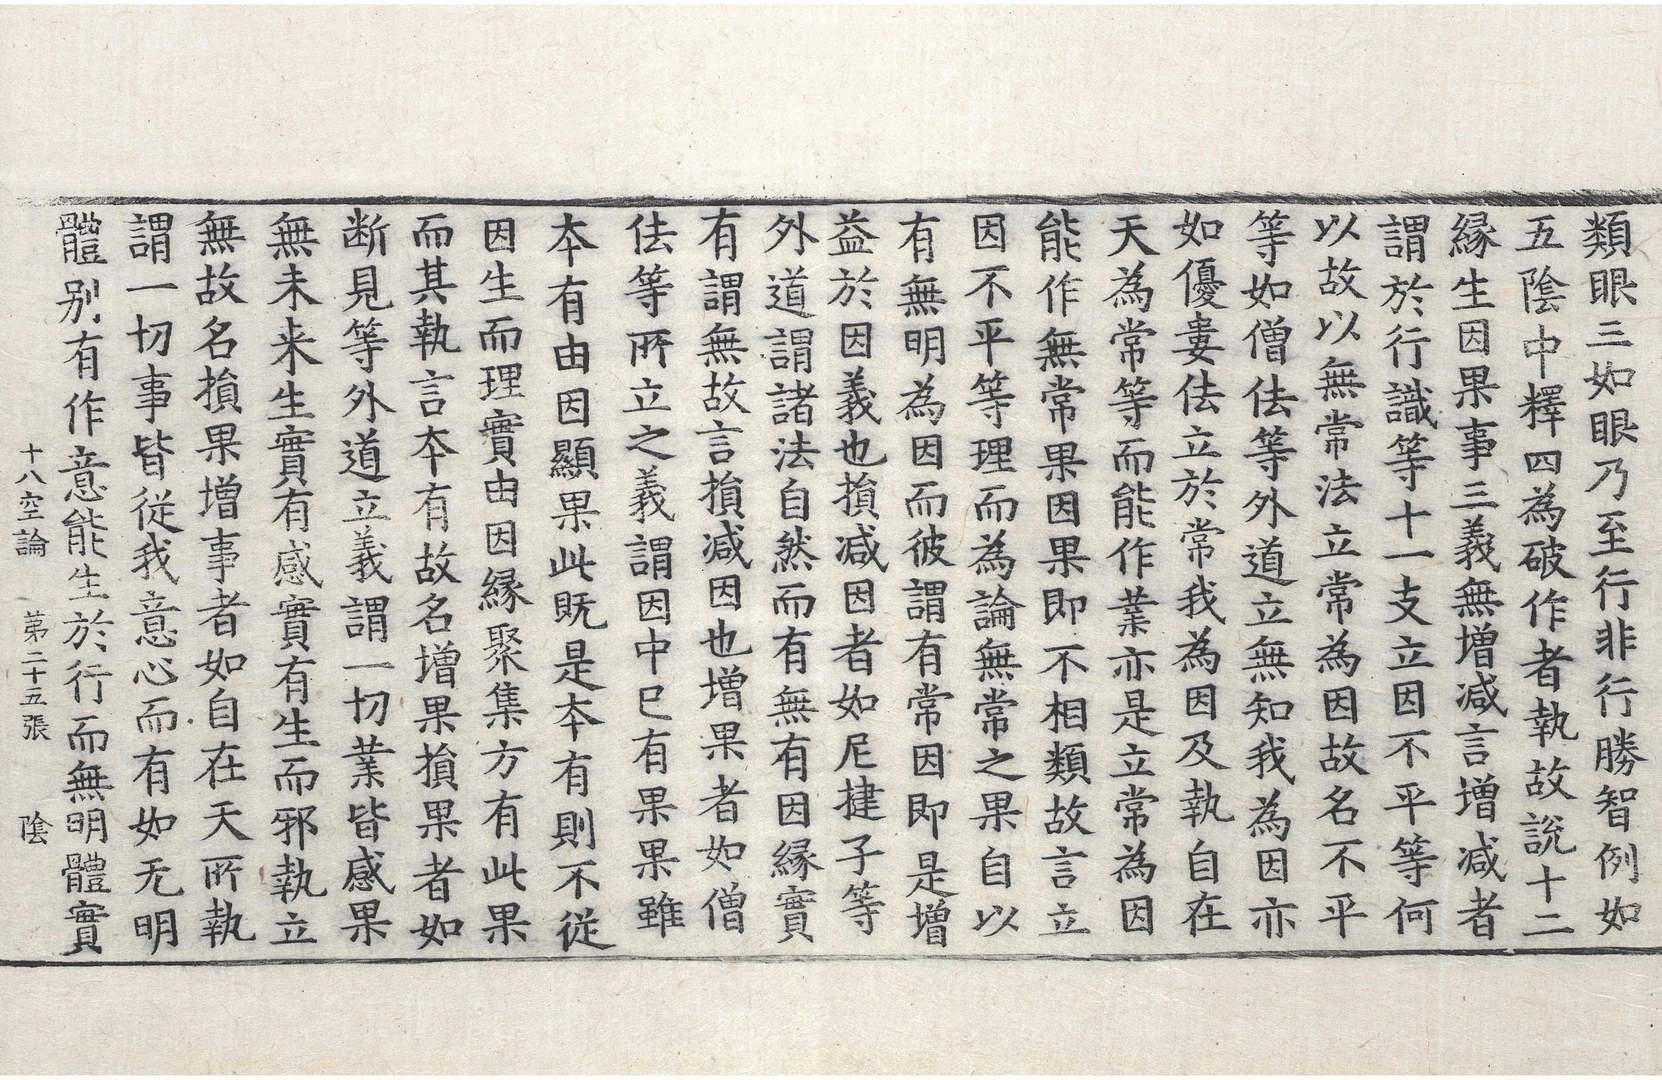 類眼三如眼乃至行非行勝智例如
五陰中釋四為破作者執故說十二
緣生因果事三義無增减言增减者
謂於行識等十一支立因不平等何
以故以無常法立常為因故名不平
等如僧佉等外道立無知我為因亦
如優婁佉立於常我為因及執自在
天為常等而能作業亦是立常為因
能作無常果因果即不相類故言立
因不平等理而為論無常之果自以
有無明為因而彼謂有常因即是增
益於因義也損减因者如尼揵子等
外道謂諸法自然而有無有因緣實
有謂無故言損减因也增果者如僧
佉等所立之義謂因中已有果果雖
夲有由因顯果此既是夲有則不從
因生而理實由因緣聚集方有此果
而其執言夲有故名增果損果者如
断見等外道立義謂一切業皆感果
無未来生實有感實有生而邪執立
無故名損果增事者如自在天所執
謂一切事皆從我意心而有如无明
體别有作意能生於行而無明體實
十八空論 苐二十五張 陰